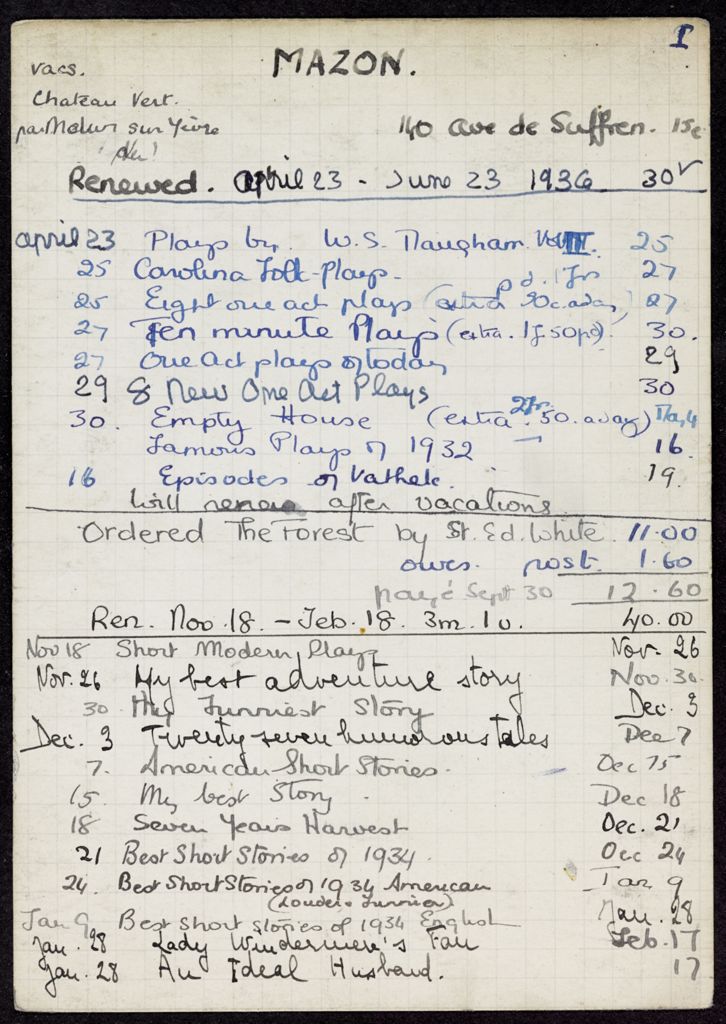 I
MAZON.
vacs.
Chateau Vert.
par Melun sur Yèvre
140 ave de Suffren. 15e
Renewed. april 23 - June 23 1936 30
april 23 Plays by. W.S. Maugham. Vol III. 25
25 Carolina Folk-Plays. 27
pd. 1fr
25 Eight one act plays (extra 50c. a day) 27
27 Ten minute Plays (extra. 1f 50 pd). 30.
27 One Act plays of today 29
29 8 New One Act Plays 30
30. Empty House (extra. 50. a day) May 4
2fr.
Famous Plays of 1932 16.
16 Episodes of Vathek. 19.
Will renew after vacations
Ordered The Forest by St. Ed. White. 11.00
owes. post. 1.60
payé Sept 30 12.60
Ren. Nov. 18. - Feb. 18. 3m. 1v. 40.00
Nov 18 Short Modern Plays Nov. 26
Nov. 26 My best adventure story Nov. 30
30. My Funniest Story Dec. 3
Dec. 3 Twenty-seven humorous tales Dec 7
7. American Short Stories. Dec 15
15. My best Story. Dec 18
18 Seven Years Harvest Dec. 21
21 Best Short Stories of 1934. Dec 24
24. Best Short Stories of 1934 American Jan 9
Jan 9 Best short stories of 1934 English Jan. 28
Jan. 28 Lady Windermere's Fan Feb. 17
Jan. 28 An Ideal Husband. 17